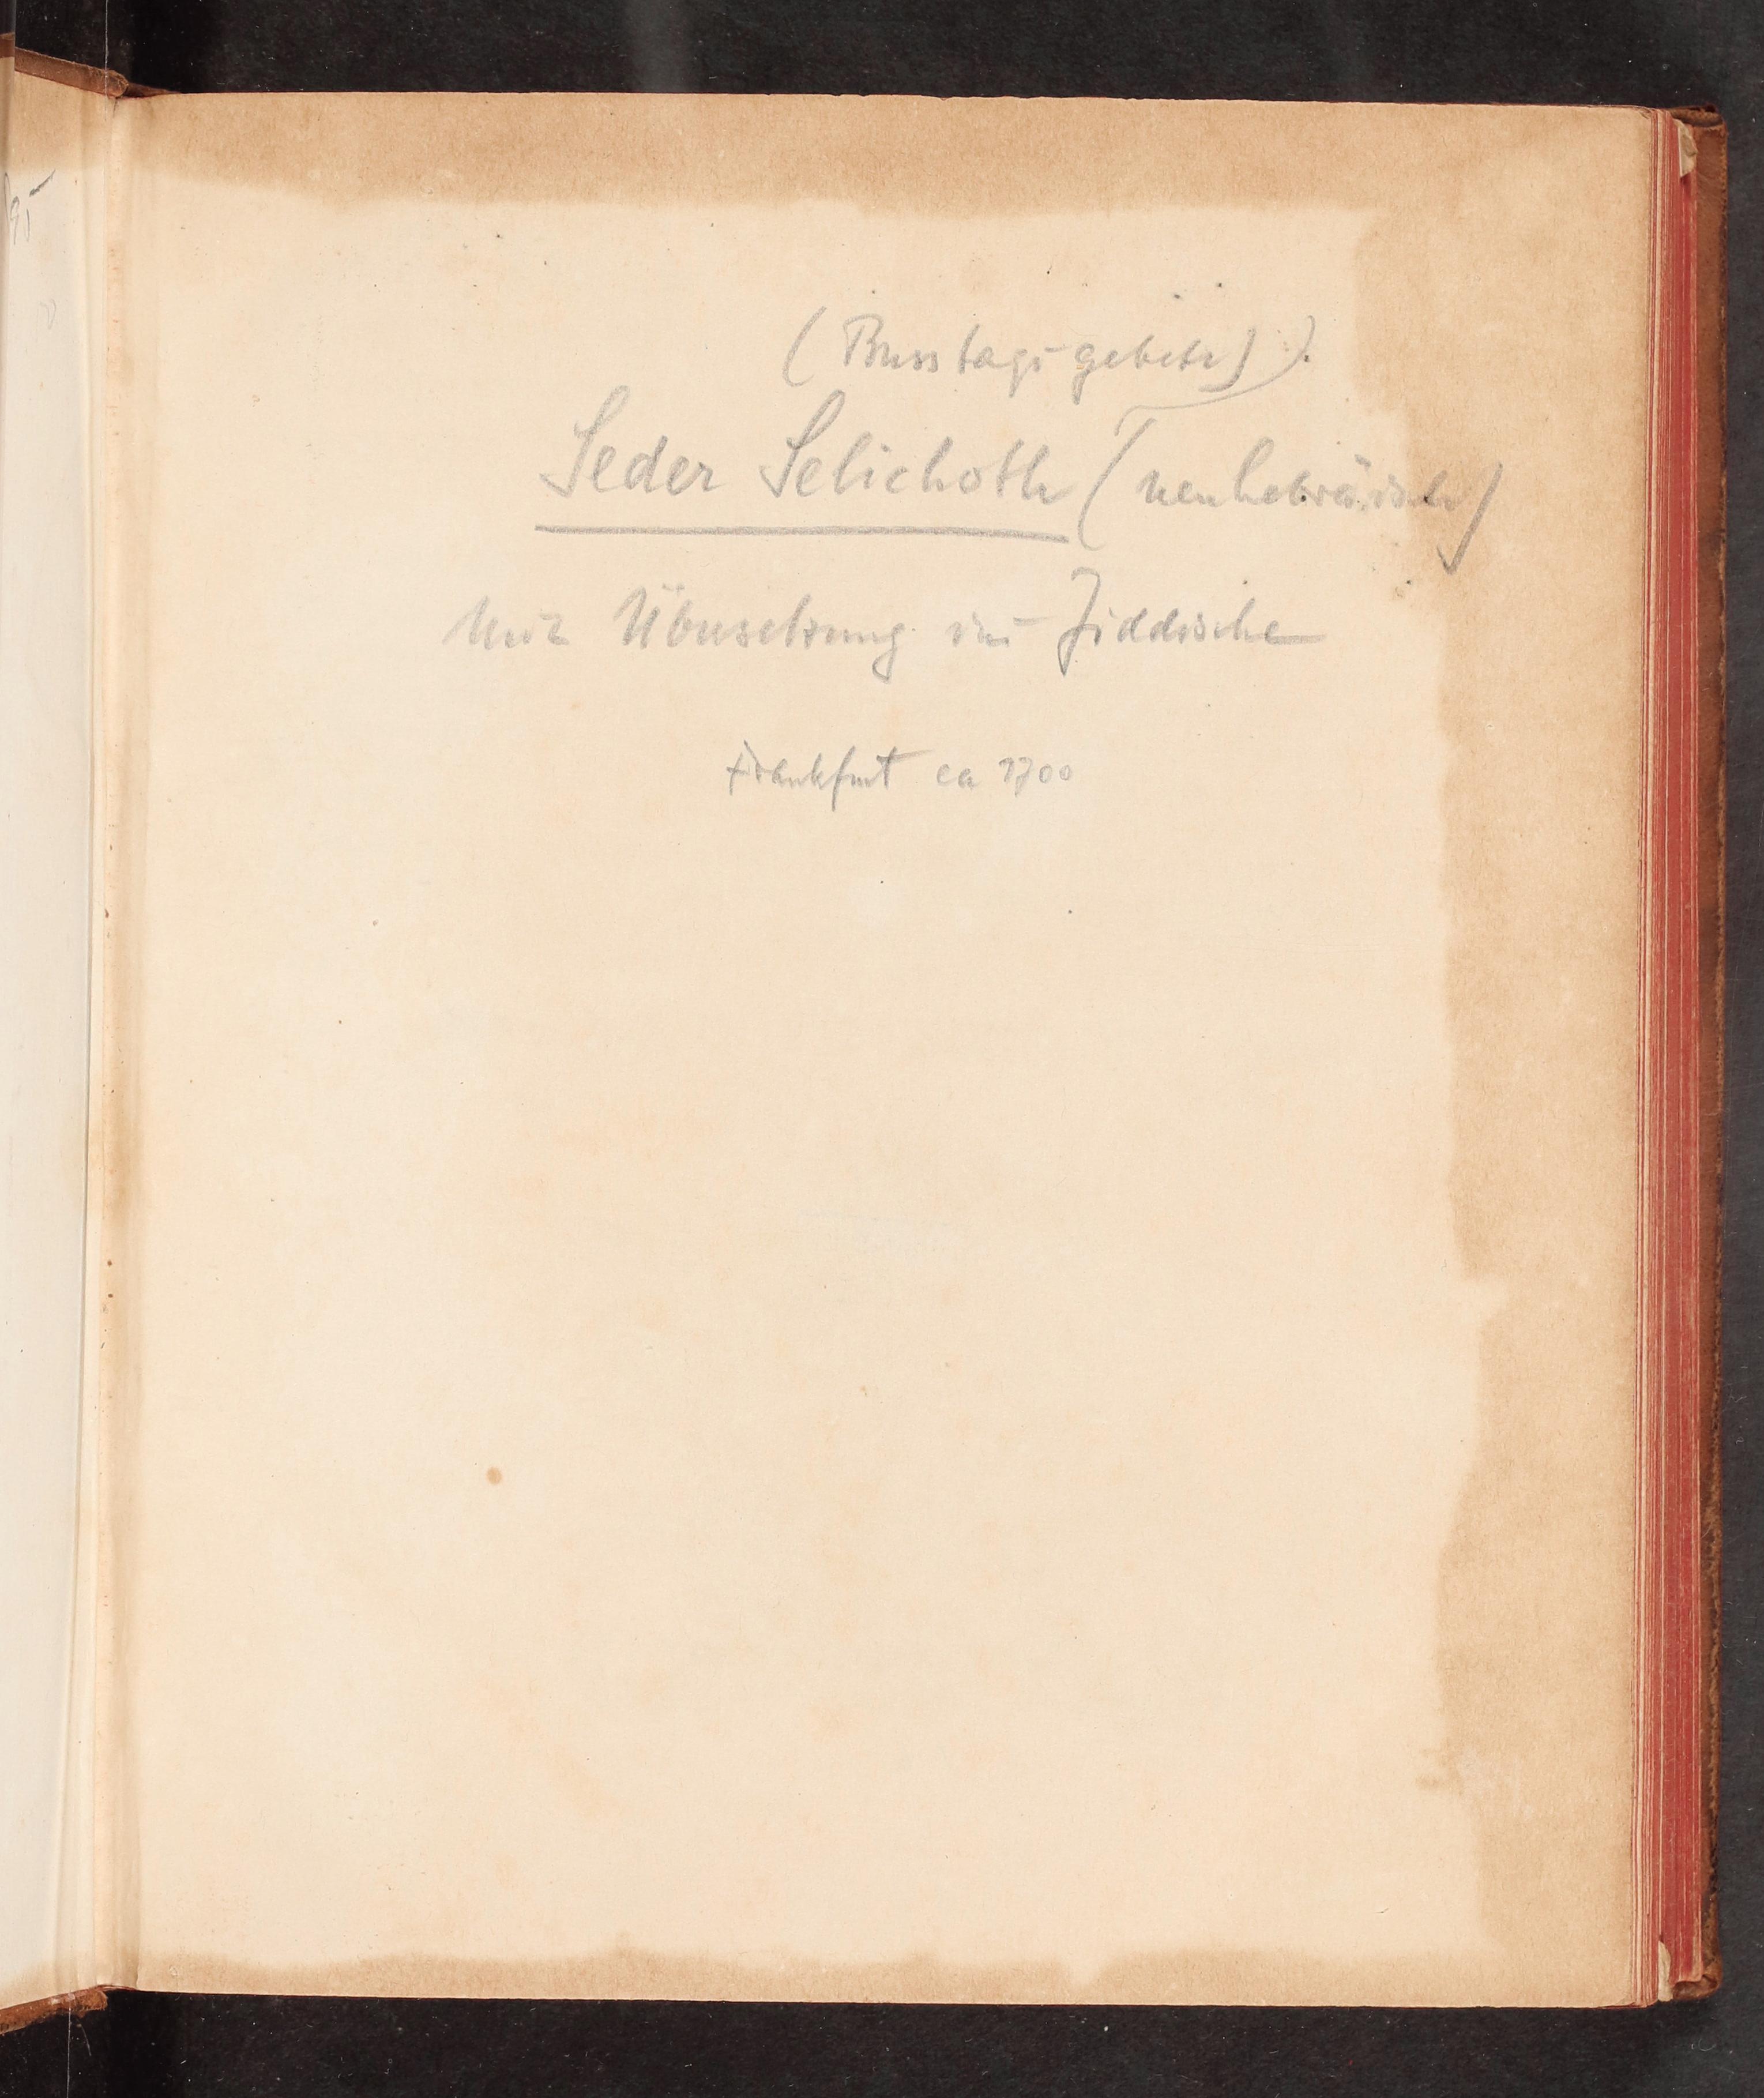 (Busstags-gebete)
Seder Selichoth (neuhebräisch)
mit Übersetzung ins Jiddische
Frankfurt ca 1700